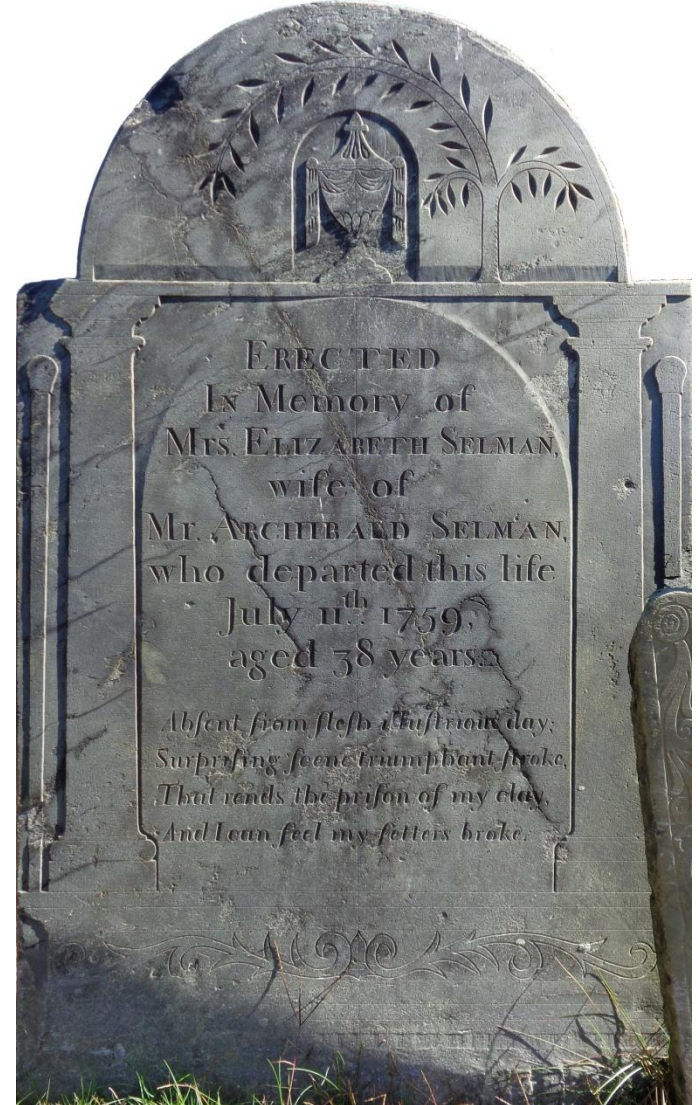 ERECTED
IN Memory of
MRS. ELIZABETH SELMAN,
wife of
Mr. ARCHIBALD SELMAN,
who departed this life
July 11th. 1759,
aged 38 years.
Abſent from fleſh illuſtrious day;
Surpriſing ſcene triumphant ſtroke,
That rends the priſon of my clay,
And I can feel my fetters broke.